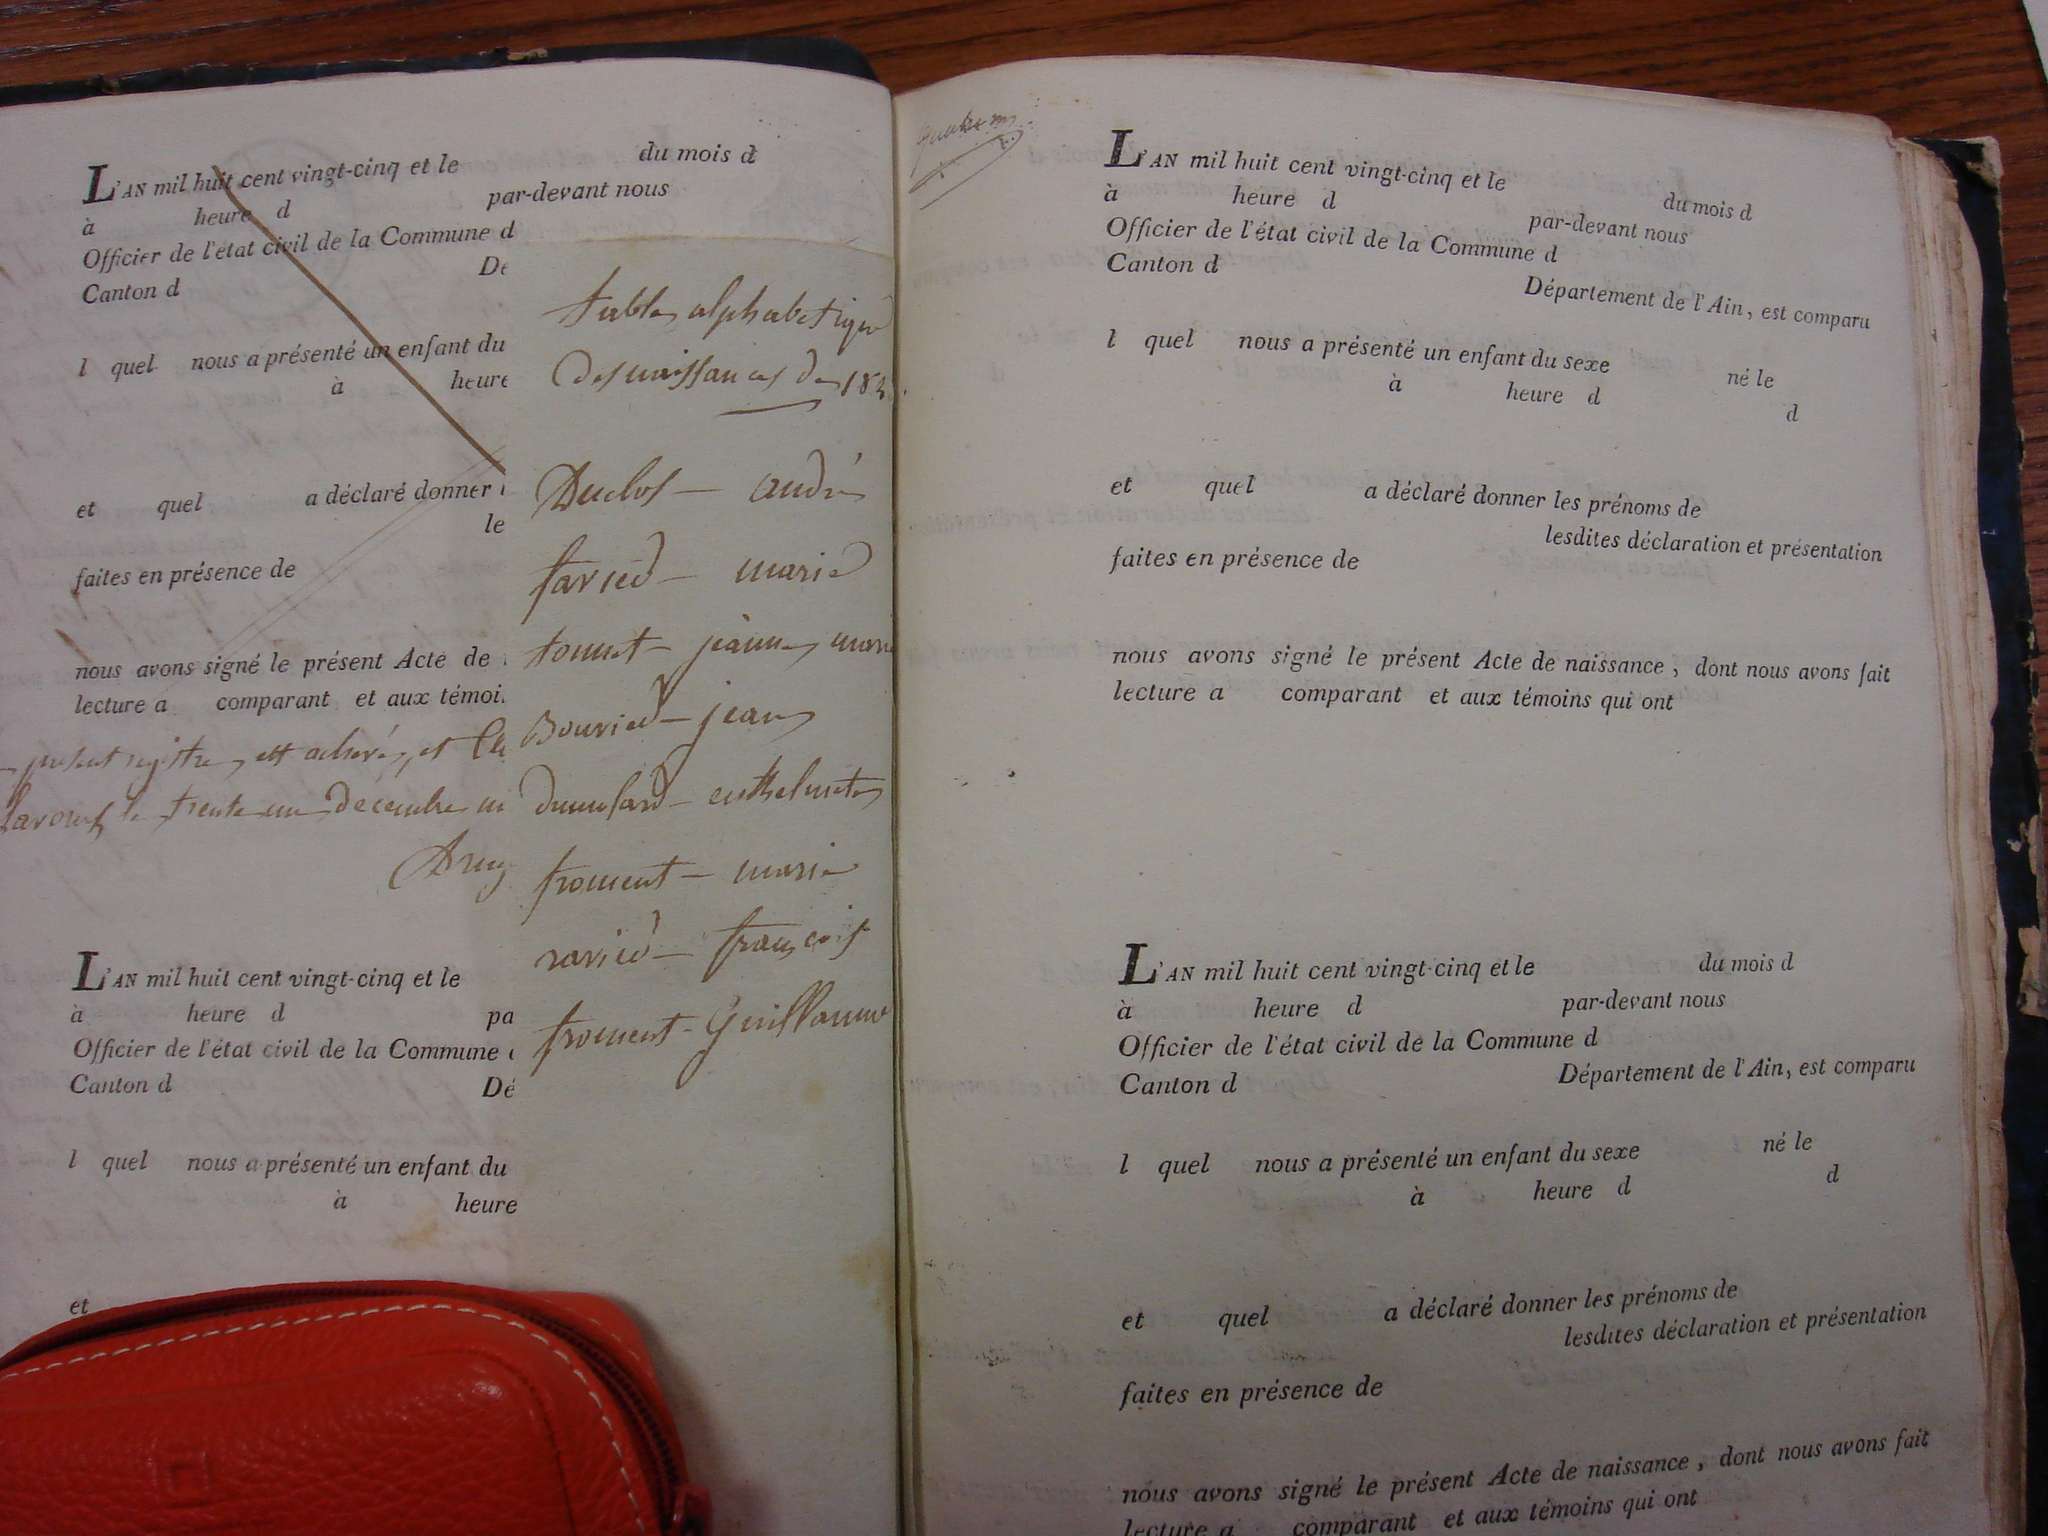 L'AN mil huit cent vingt-cinq et le du mois d
à heure d par-devant nous
Officier de l'état civil de la Commune d
Canton d Dé
l quel nous a présenté un enfant du
à heure
et quel a déclaré donner
le
faites en présence de
nous avons signé le présent Acte de
lecture a comparant et aux témoi
present registre est
le trente un Decembre
L'AN mil huit cent vingt-cinq et le
à heure d pa
Officier de l'état civil de la Commune
Canton d Dé
l quel nous a présenté un enfant du
à heure
et
table alphabetique
des naissances de 182
Duclos - andré
- marie
- jeanne marie
- jean
froment - marie
- françois
froment - Guillaume
L'AN mil huit cent vingt-cinq et le du mois d
à heure d par-devant nous
Officier de l'état civil de la Commune d
Canton d Département de l'Ain, est comparu
l quel nous a présenté un enfant du sexe né le
à heure d d
et quel a déclaré donner les prénoms de
lesdites déclaration et présentation
faites en présence de
nous avons signé le présent Acte de naissance, dont nous avons fait
lecture a comparant et aux témoins qui ont
L'AN mil huit cent vingt-cinq et le du mois d
à heure d par-devant nous
Officier de l'état civil de la Commune d
Canton d Département de l'Ain, est comparu
l quel nous a présenté un enfant du sexe né le
à heure d d
et quel a déclaré donner les prénoms de
lesdites déclaration et présentation
faites en présence de
nous avons signé le présent Acte de naissance, dont nous avons fait
lecture a comparant et aux témoins qui ont